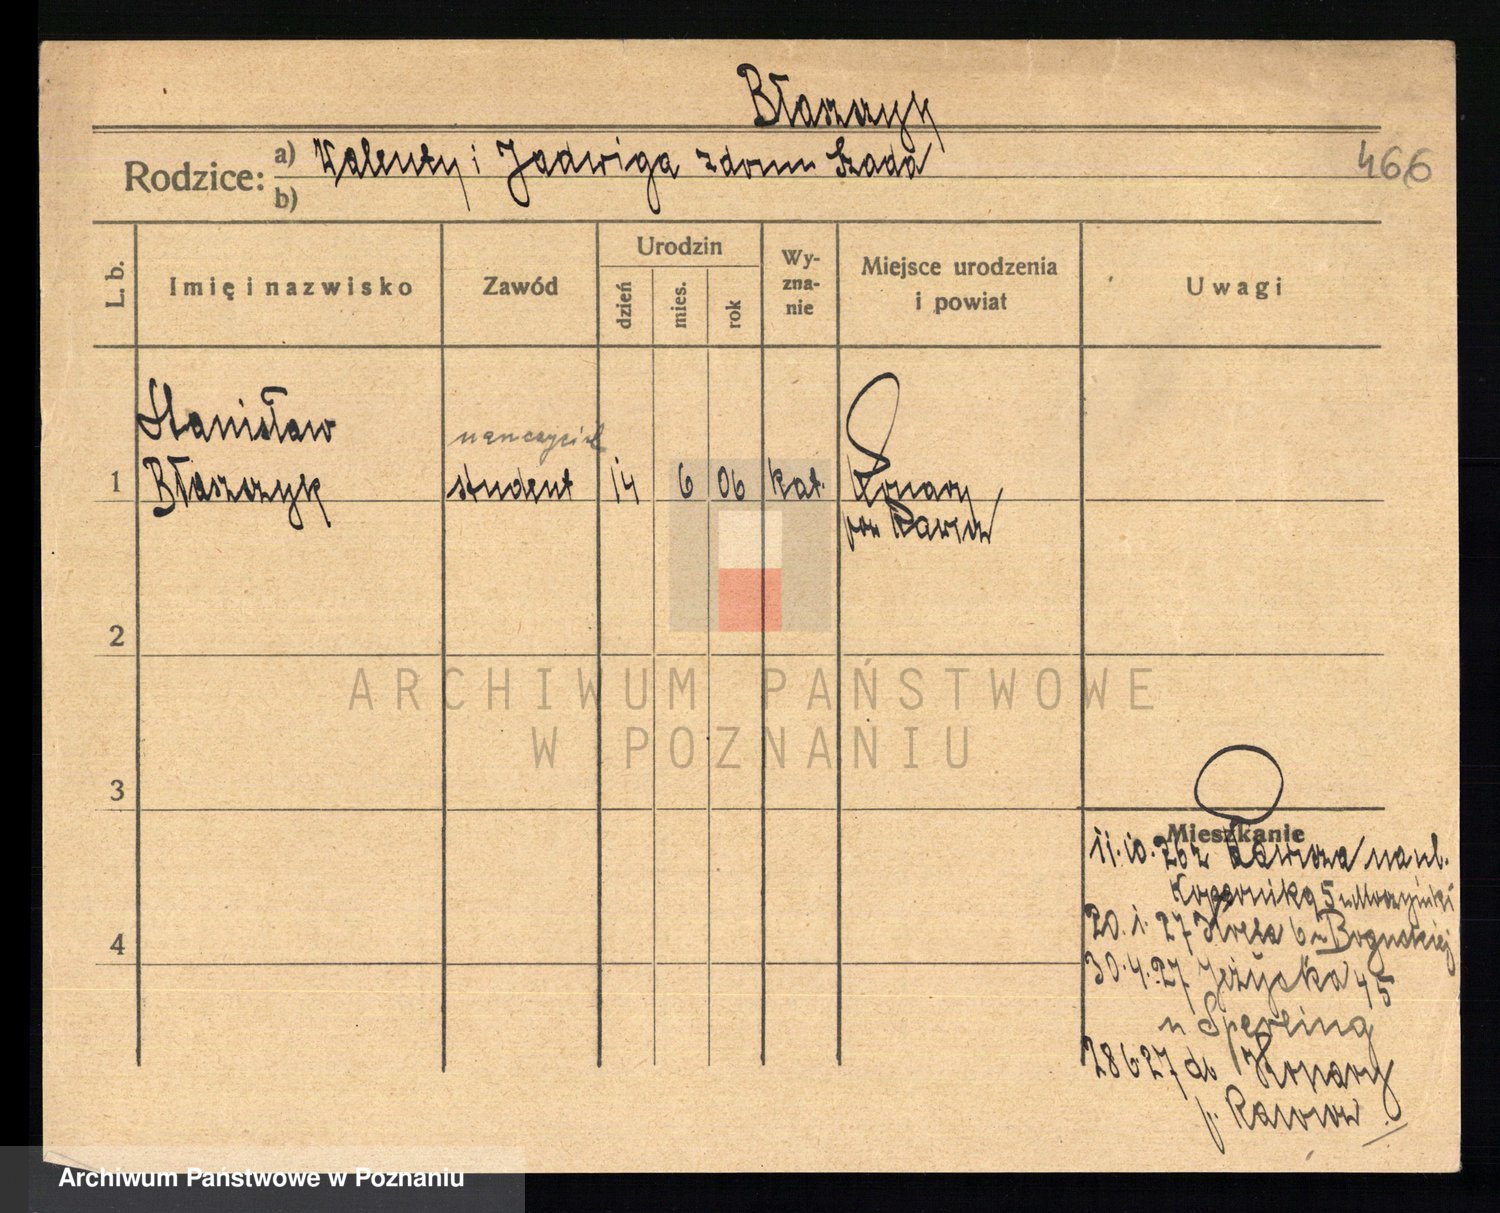 Błaszczyk
Rodzice: a) Walenty i Jadwiga z domu Szada
b)
466
L. b.
Imię i nazwisko
Zawód
Urodzin
dzień
mies.
rok
Wy-
zna-
nie
Miejsce urodzenia
i powiat
Uwagi
Stanisław
nauczyciel
1 Błaszczyk student 14 6 06 kat. Konary
pow Rawicz
2
ARCHIWUM PAŃSTWOWE
W POZNANIU
3
Mieszkanie
11.10.26 z Rawicza na ul.
Kopernika 5
4
20.1.27 6 u Boguckiej
30.4.27 Jeżycka 45
u Sperling
28 6 27 do Konary
p. Rawicz
Archiwum Państwowe w Poznaniu